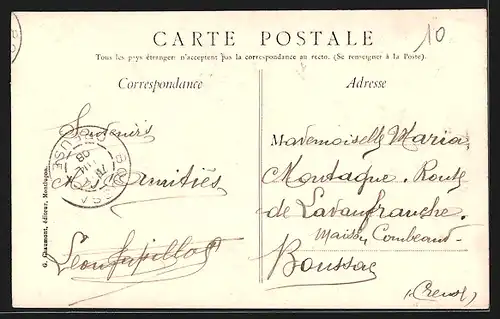 10
CARTE POSTALE
Tous les pays étrangers n'acceptent pas la correspondance au recto. (Se renseigner à la Poste).
Correspondance
Adresse
Souvenirs
& Amitiés
Mademoiselle Maria
Montagne. Route
de Lavaufranche.
Maison
Boussac
(Creuse)
G. Chaumont, éditeur, Montluçon.
CREUSE
08